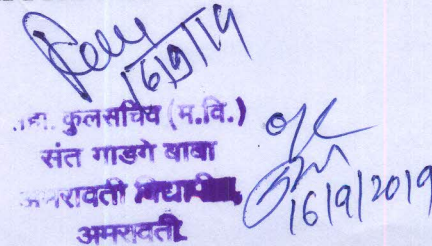 16/9/19
कुलसचिव (म.वि.)
संत गाडगे बाबा
अमरावती विद्यापीठ,
अमरावती.
16/9/2019